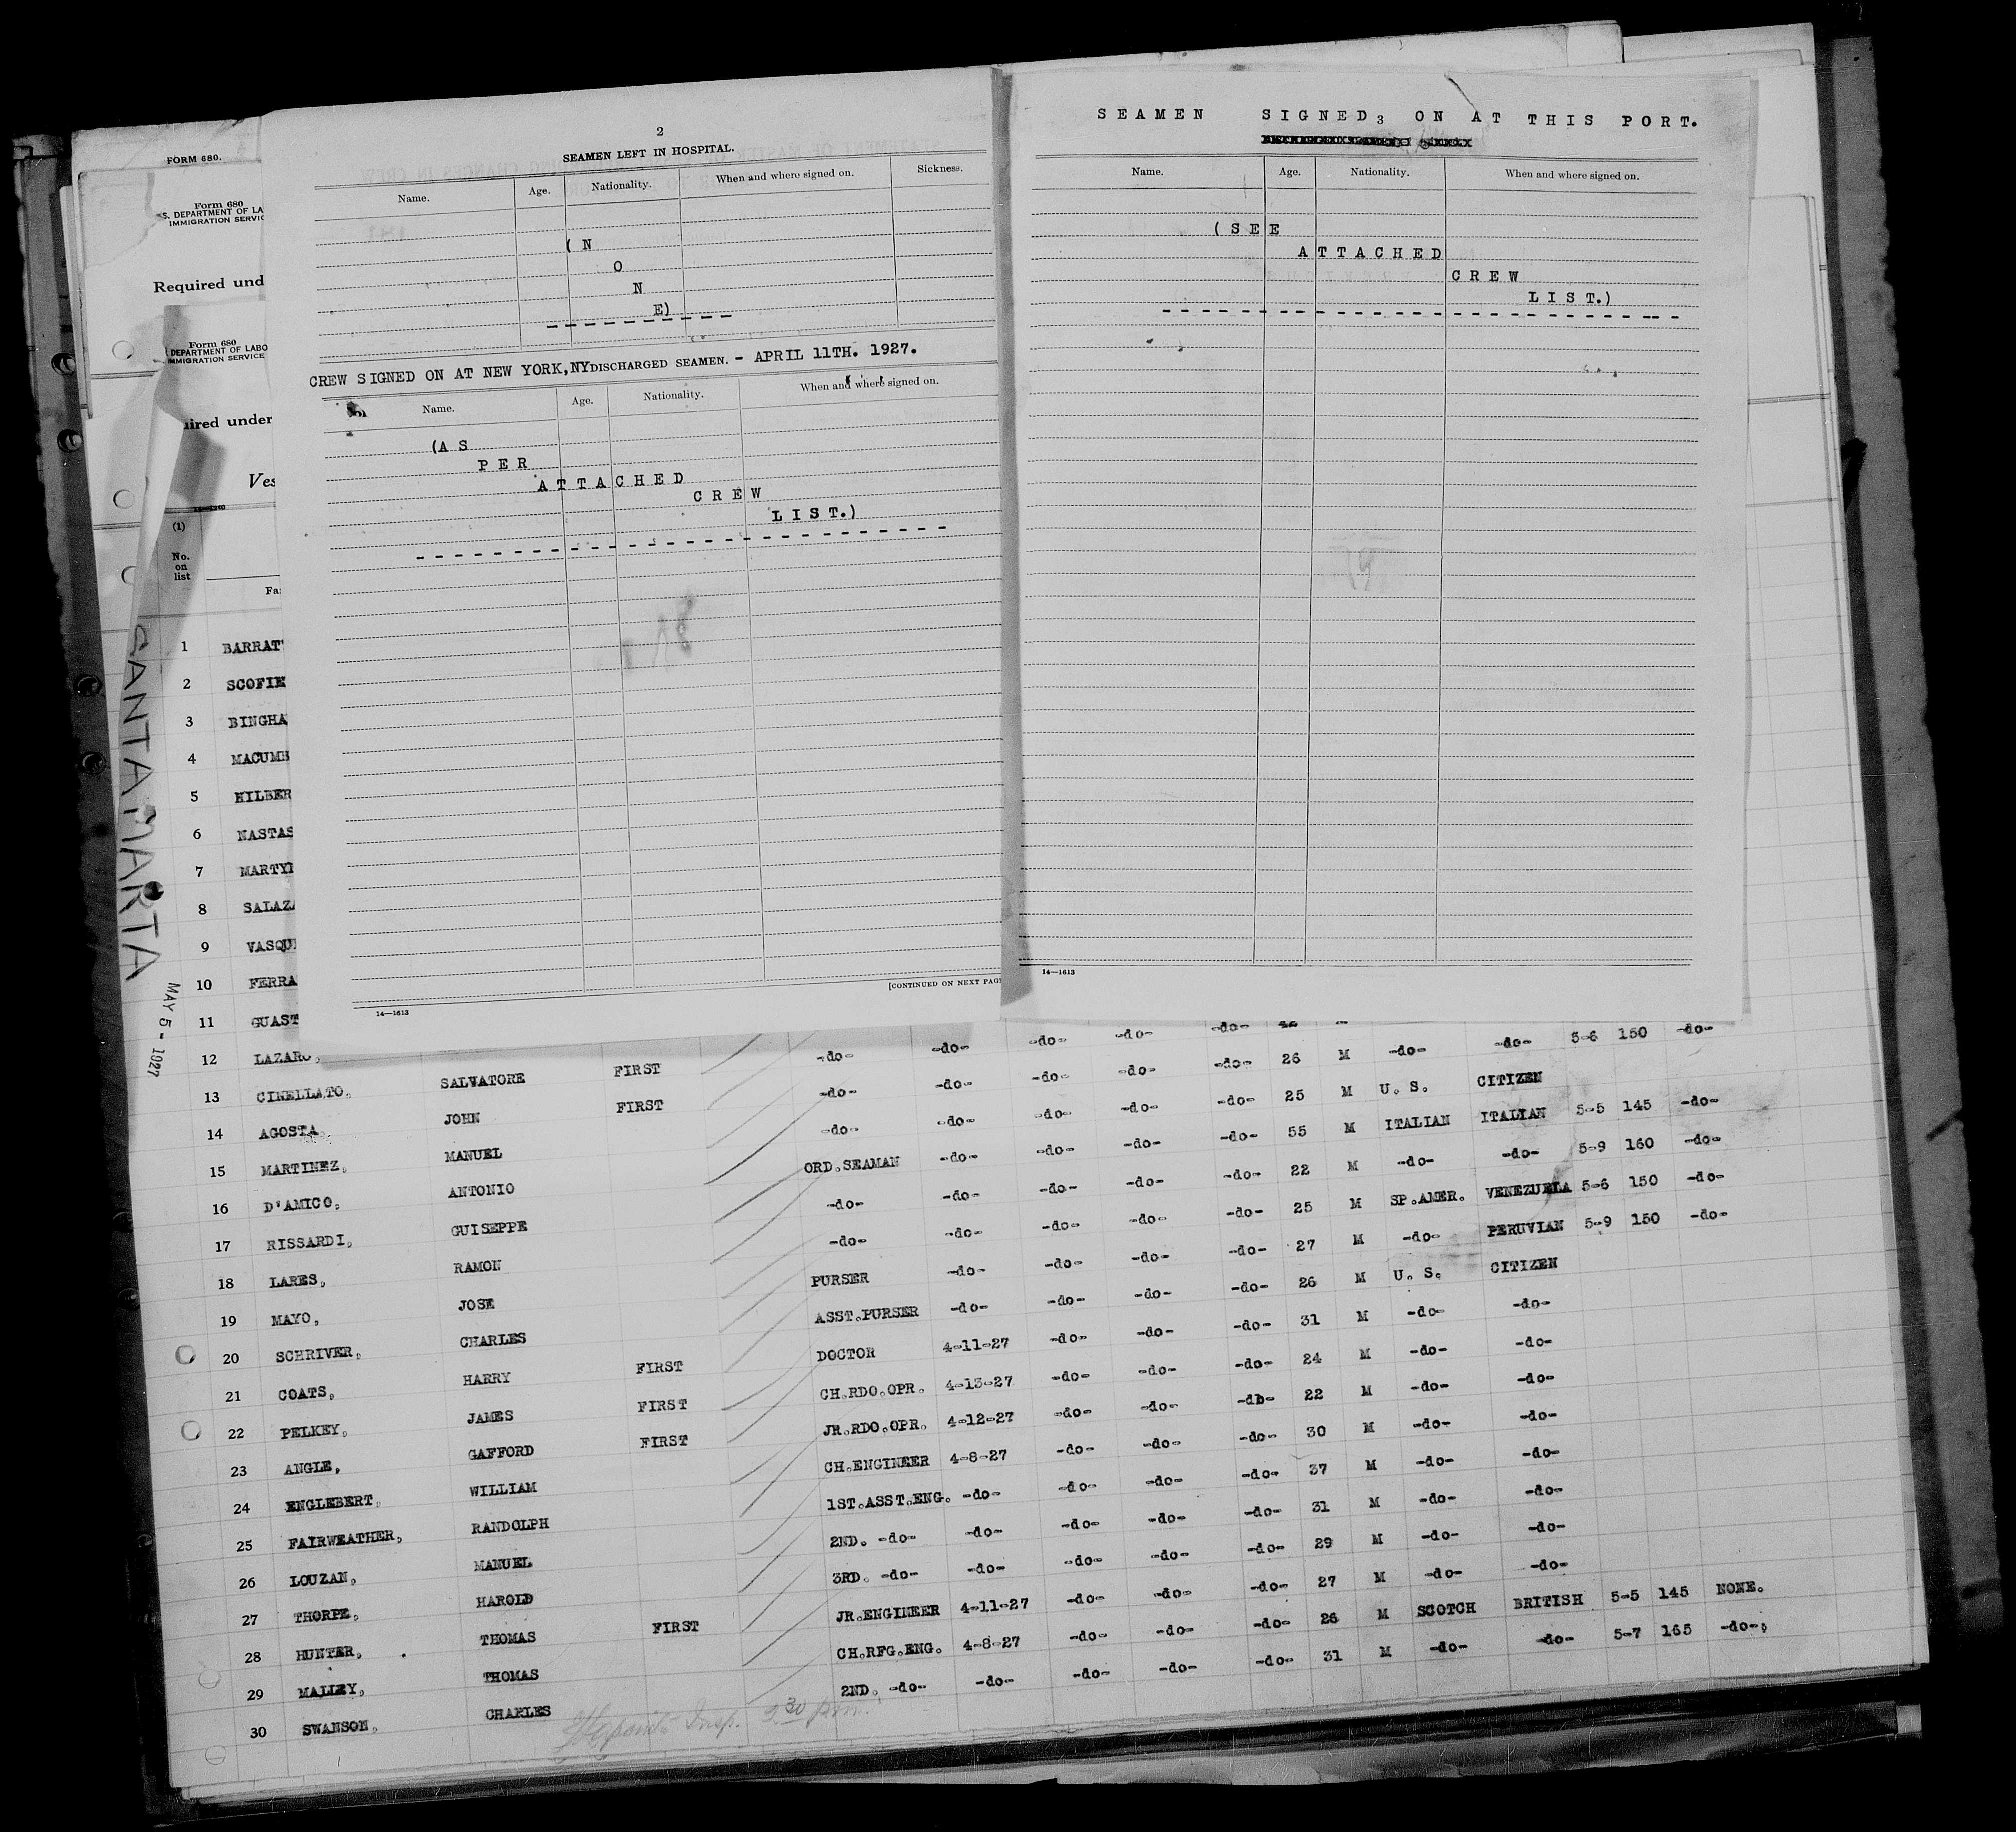 FORM 680.
Form 680
S. DEPARTMENT OF LA
IMMIGRATION SERVIC
Required und
Form 680
DEPARTMENT OF LABO
IMMIGRATION SERVICE
uired under
Ves
(1)
No.
on
list
Fa
SANTA MARTA
MAY 5 - 1927
2
SEAMEN LEFT IN HOSPITAL.
Name. Age. Nationality. When and where signed on. Sickness.
( N
O
N
E)
CREW SIGNED ON AT NEW YORK,NY DISCHARGED SEAMEN. - APRIL 11TH. 1927.
Name. Age. Nationality. When and where signed on.
(A S
P E R
A T T A C H E D
C R E W
L I S T.)
[CONTINUED ON NEXT PAG
14—1613
SEAMEN SIGNED 3 ON AT THIS PORT.
Name. Age. Nationality. When and where signed on.
( S E E
A T T A C H E D
C R E W
L I S T.)
14—1613
1 BARRAT
2 SCOFIE
3 BINGHA
4 MACUMB
5 HILBER
6 NASTAS
7 MARTYN
8 SALAZA
9 VASQUE
10 FERRA
11 GUAST
12 LAZARO,
13 CINELLATO, SALVATORE FIRST -do- -do- -do- -do- -do- 42 M
14 AGOSTA JOHN FIRST -do- -do- -do- -do- -do- 26 M -do- -do- 5-6 150 -do-
15 MARTINEZ, MANUEL -do- -do- -do- -do- -do- 25 M U. S. CITIZEN
16 D'AMICO, ANTONIO ORD.SEAMAN -do- -do- -do- -do- 55 M ITALIAN ITALIAN 5-5 145 -do-
17 RISSARDI, GUISEPPE -do- -do- -do- -do- -do- 22 M -do- -do- 5-9 160 -do-
18 LARES, RAMON -do- -do- -do- -do- -do- 25 M SP.AMER. VENEZUELA 5-6 150 -do-
19 MAYO, JOSE PURSER -do- -do- -do- -do- 27 M -do- PERUVIAN 5-9 150 -do-
20 SCHRIVER, CHARLES ASST.PURSER -do- -do- -do- -do- 26 M U. S. CITIZEN
21 COATS, HARRY FIRST DOCTOR 4-11-27 -do- -do- -do- 31 M -do- -do-
22 PELKEY, JAMES FIRST CH.RDO.OPR. 4-13-27 -do- -do- -do- 24 M -do- -do-
23 ANGLE, GAFFORD FIRST JR.RDO.OPR. 4-12-27 -do- -do- -do- 22 M -do- -do-
24 ENGLEBERT, WILLIAM CH.ENGINEER 4-8-27 -do- -do- -do- 30 M -do- -do-
25 FAIRWEATHER, RANDOLPH 1ST.ASST.ENG. -do- -do- -do- -do- 37 M -do- -do-
26 LOUZAN, MANUEL 2ND. -do- -do- -do- -do- -do- 31 M -do- -do-
27 THORPE, HAROLD 3RD. -do- -do- -do- -do- -do- 29 M -do- -do-
28 HUNTER, THOMAS FIRST JR.ENGINEER 4-11-27 -do- -do- -do- 27 M -do- -do-
29 MALLEY, THOMAS CH.RFG.ENG. 4-8-27 -do- -do- -do- 26 M SCOTCH BRITISH 5-5 145 NONE.
30 SWANSON, CHARLES 2ND. -do- -do- -do- -do- -do- 31 M -do- -do- 5-7 165 -do-
Insp. 2 30 pm.